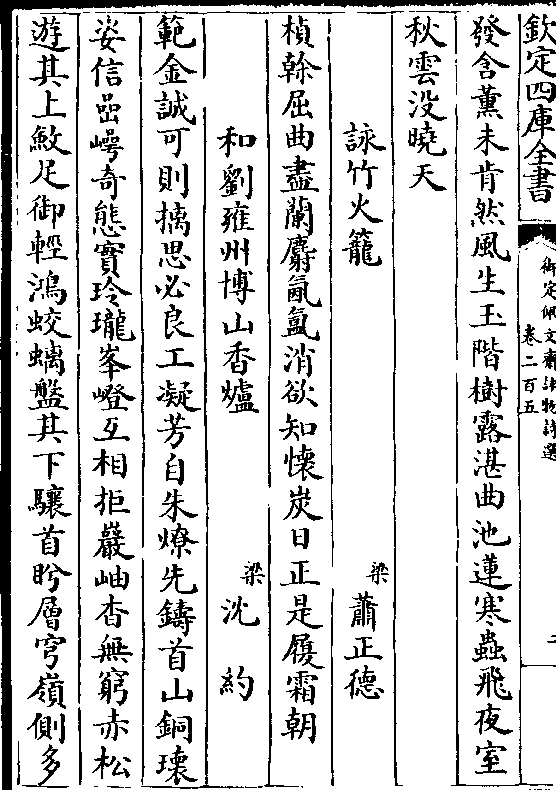 欽定四庫全書
御定佩文齋詠物詩選
卷二百五
二
發含薰未肯然風生玉階樹露湛曲池蓮寒蟲飛夜室
秋雲没曉天
詠竹火籠 梁 蕭正德
楨榦屈曲盡蘭麝氤氲消欲知懷炭日正是履霜朝
和劉雍州博山香爐 梁 沈約
範金誠可則摛思必良工凝芳自朱燎先鑄首山銅瓌
姿信嵒崿奇態實玲瓏峯嶝互相拒巖岫杳無窮赤松
遊其上斂足御輕鴻蛟螭盤其下驤首盻層穹嶺側多